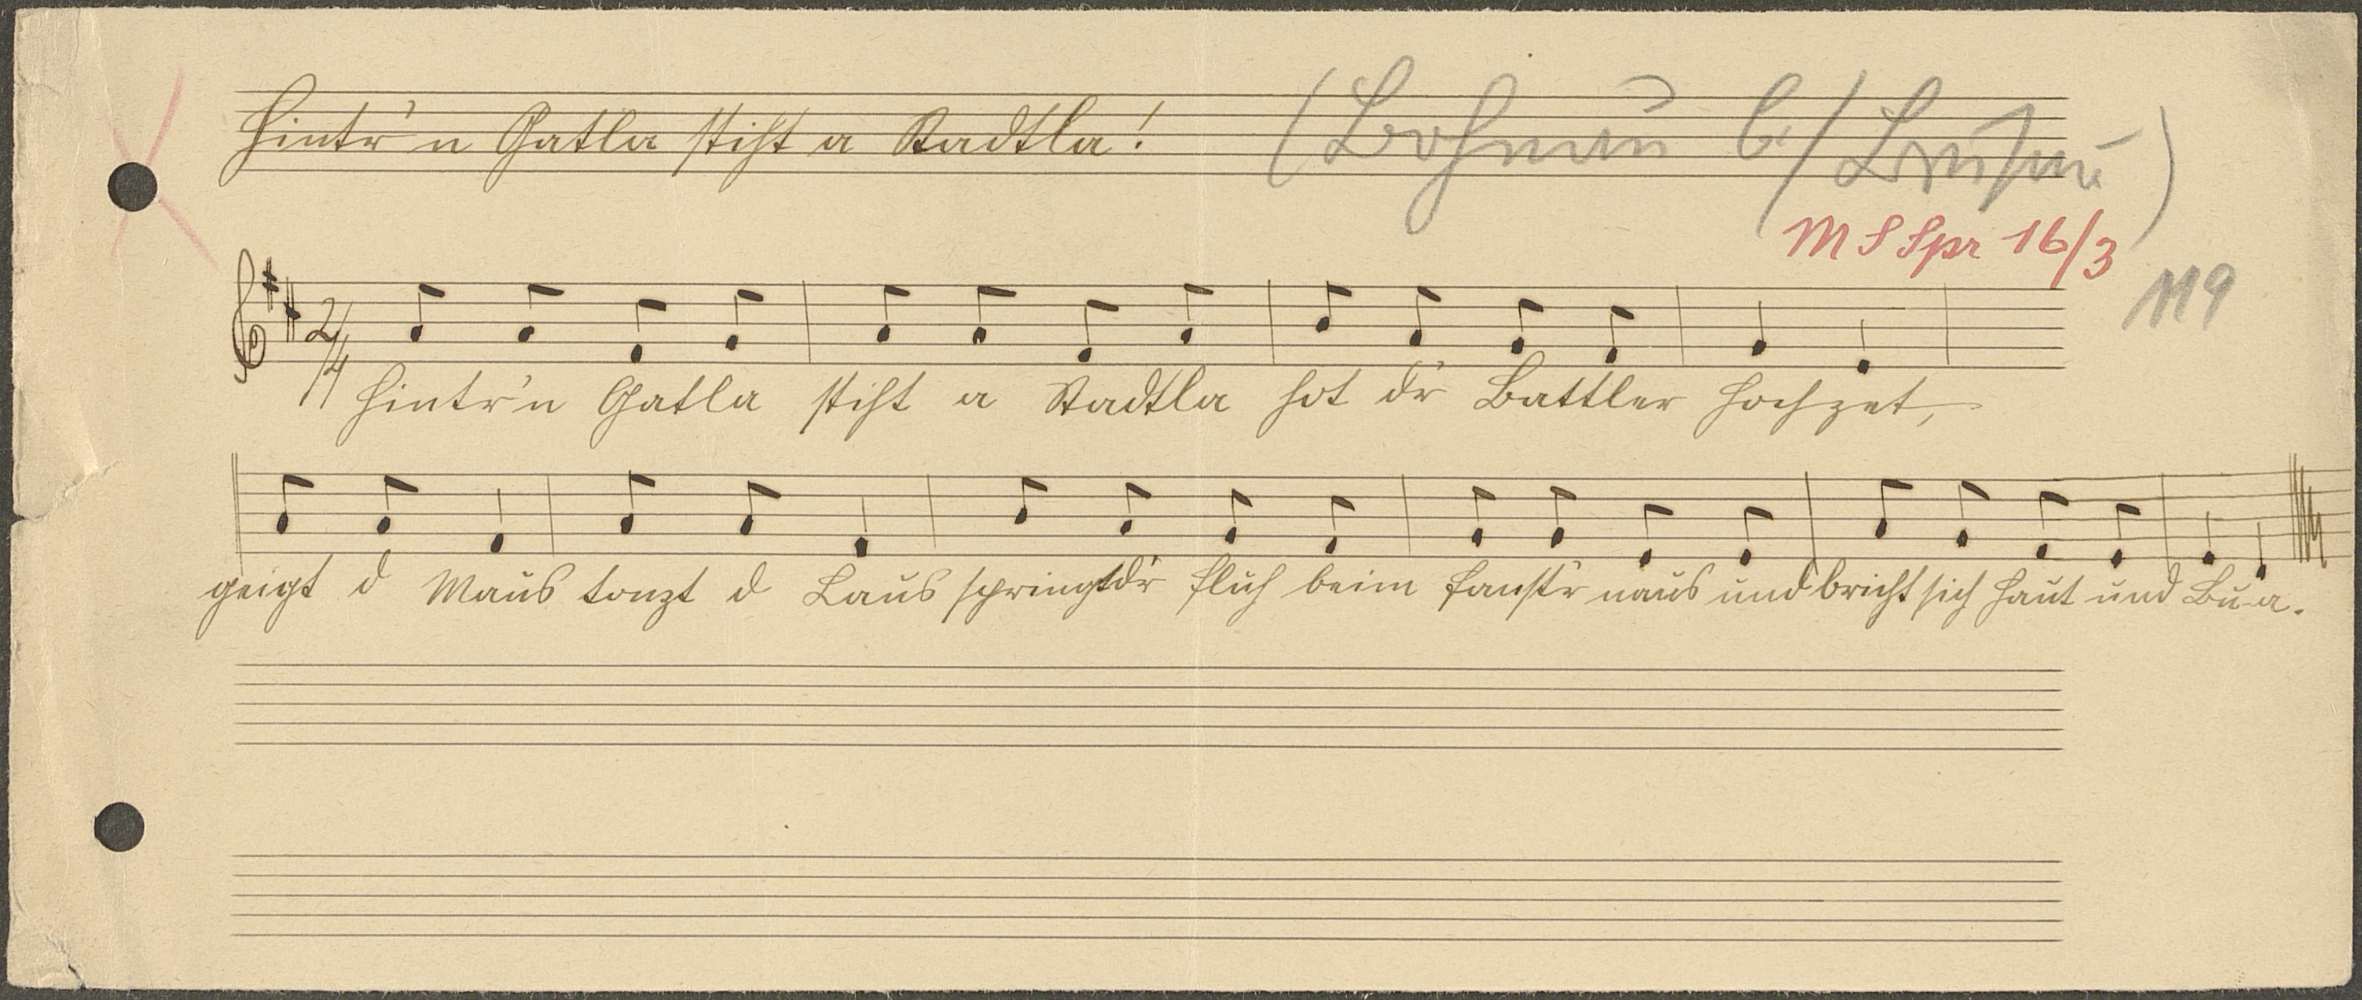 Hintr'n Gatla stiht a Stadtla!
M S Spr 16/3
119
2/4
Hintr'n Gatla stiht a Stadtla hot dr Battler Hochzet,
geigt d Maus tonzt d Laus springt dr Fluh beim Fanstr naus und bricht sich Haut und Bu-a.